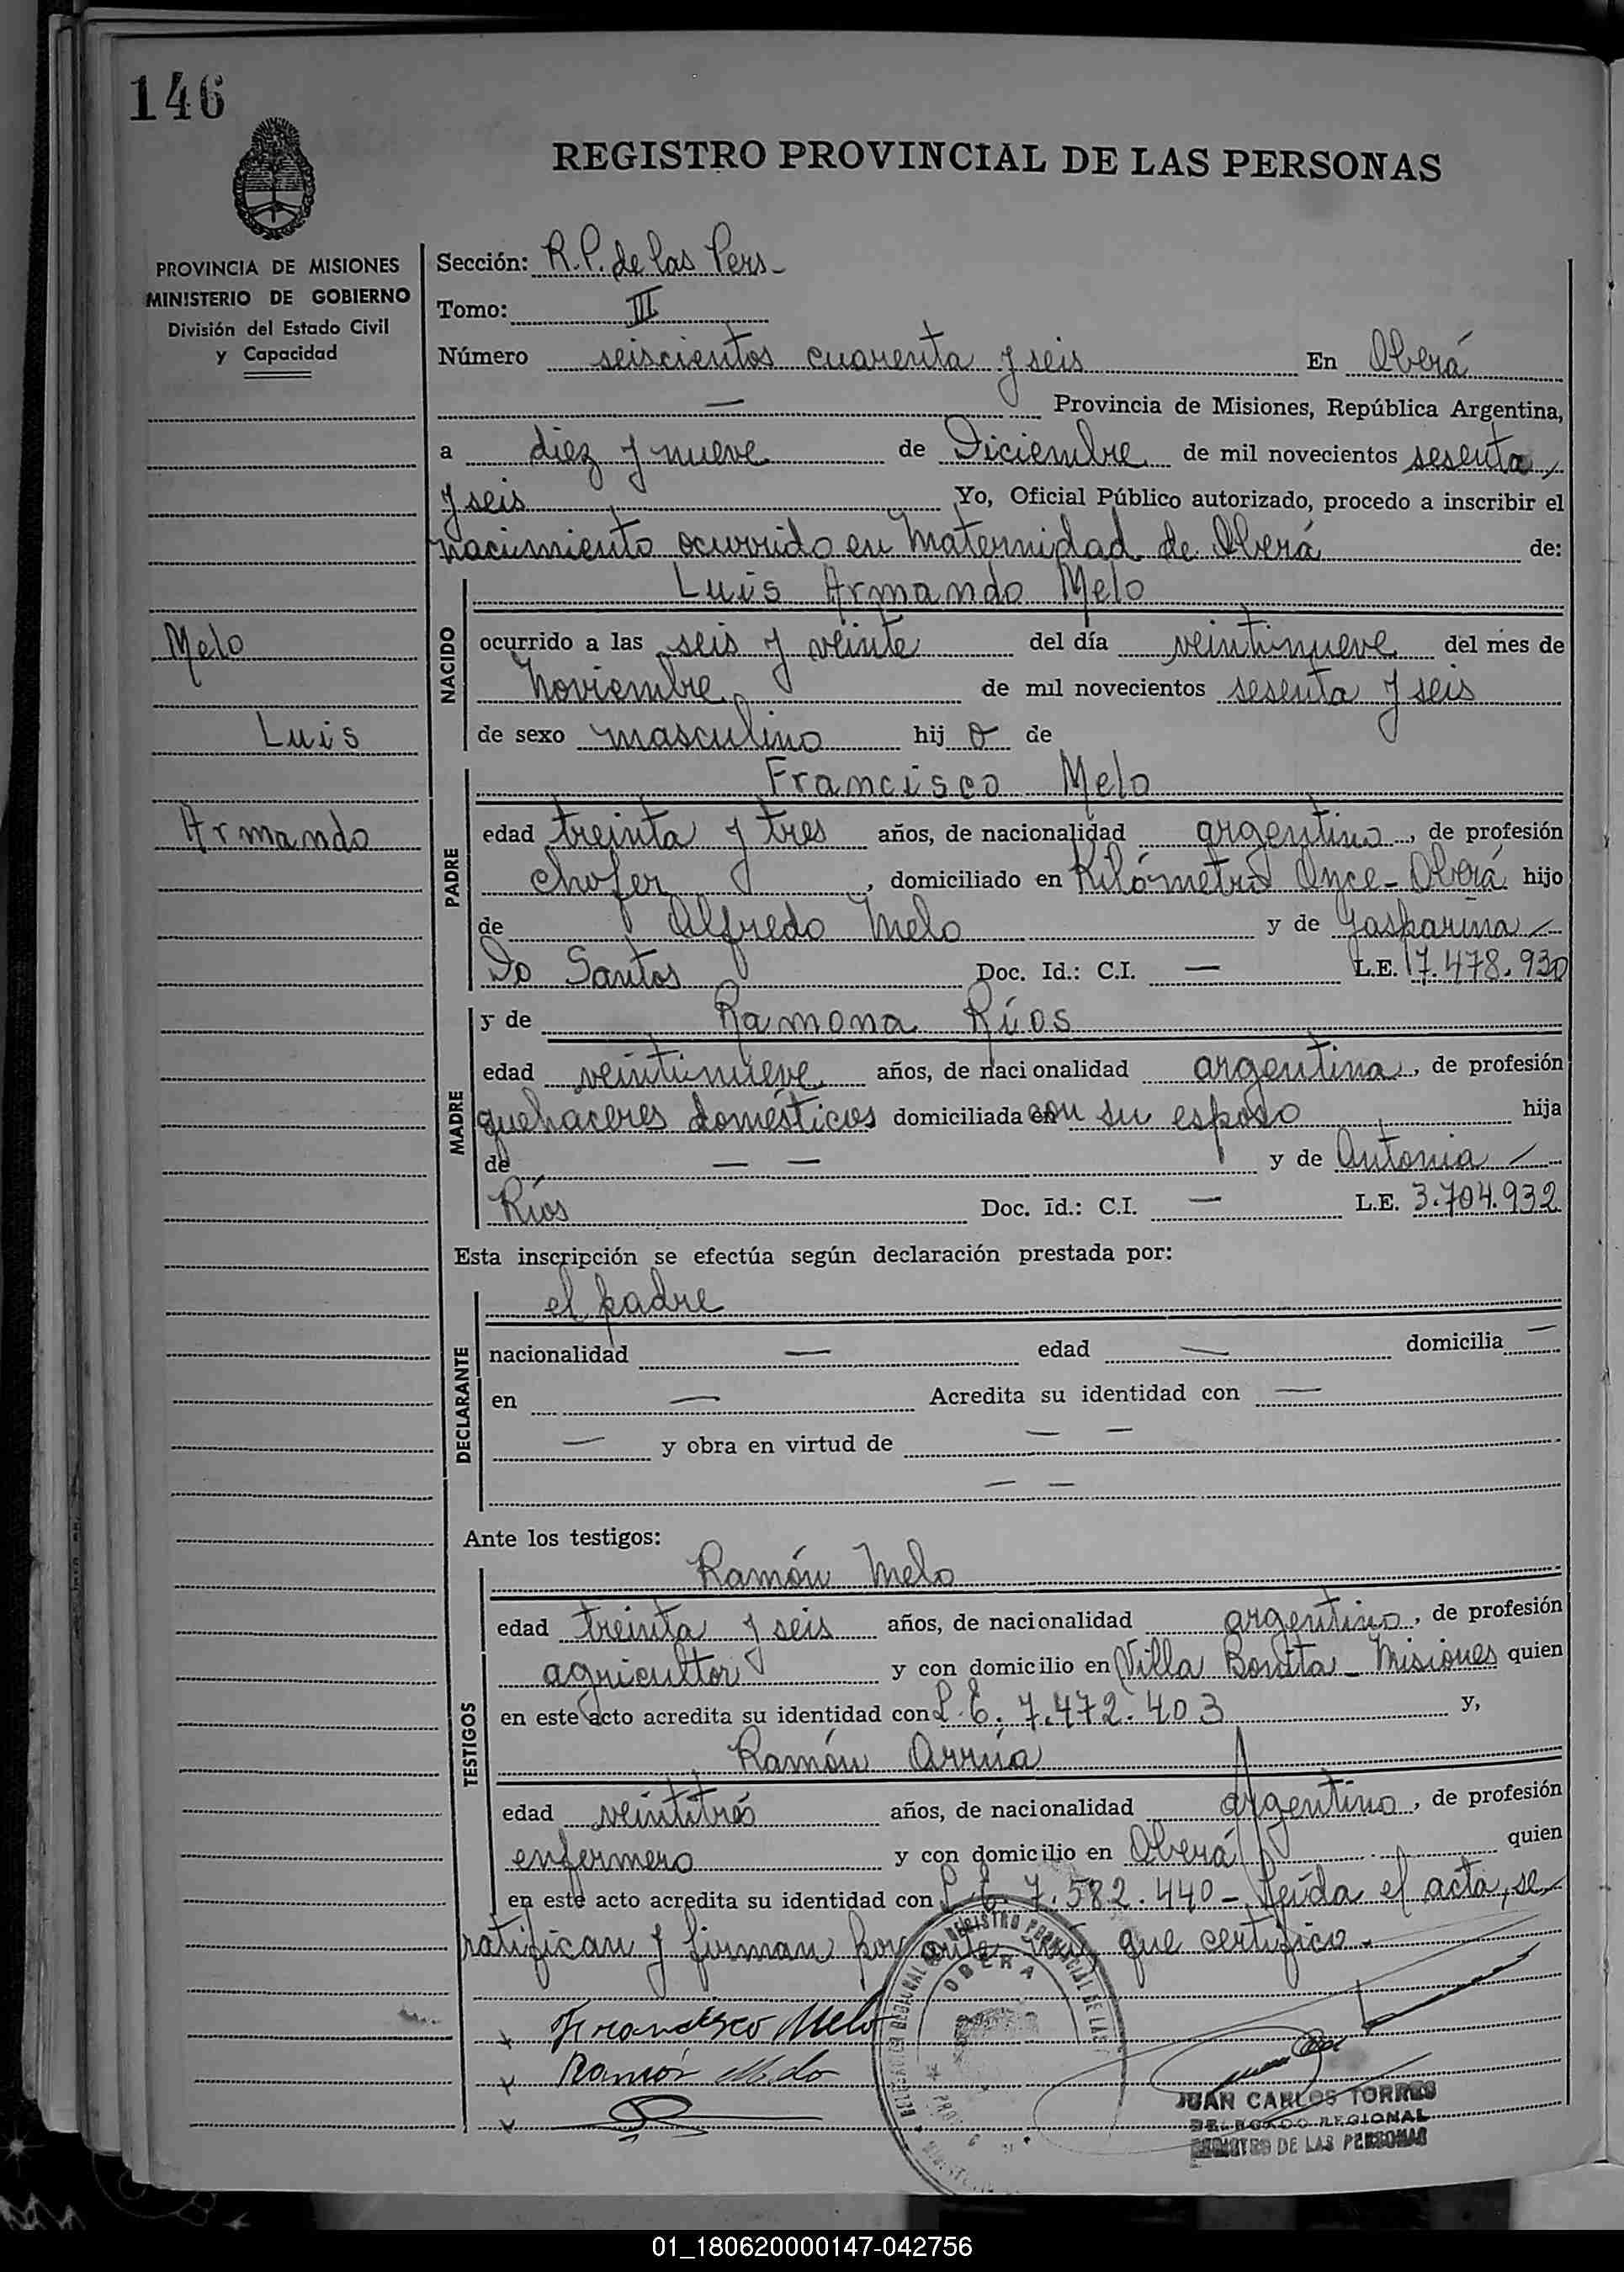 146
REGISTRO PROVINCIAL DE LAS PERSONAS
PROVINCIA DE MISIONES
MINISTERIO DE GOBIERNO
División del Estado Civil
y Capacidad
Melo
Luis
Armando
Sección: R.P. de las Pers-
Tomo: III
Número seiscientos cuarenta y seis En Oberá
— Provincia de Misiones, República Argentina,
a diez y nueve de Diciembre de mil novecientos sesenta
y seis Yo, Oficial Público autorizado, procedo a inscribir el
nacimiento ocurrido en Maternidad de Oberá de:
NACIDO
Luis Armando Melo
ocurrido a las seis y veinte del día veintinueve del mes de
Noviembre de mil novecientos sesenta y seis
de sexo masculino hij o de
PADRE
Francisco Melo
edad treinta y tres años, de nacionalidad argentino, de profesión
chofer, domiciliado en Kilómetro Once - Oberá hijo
de Alfredo Melo y de Gasparina —
Do Santos Doc. Id.: C.I. — L.E. 17.478.930
MADRE
y de Ramona Ríos
edad veintinueve años, de nacionalidad argentina, de profesión
quehaceres domésticos domiciliada en con su esposo hija
de — — y de Antonia —
Ríos Doc. Id.: C.I. — L.E. 3.704.932
Esta inscripción se efectúa según declaración prestada por:
DECLARANTE
el padre
nacionalidad — edad — domicilia —
en — Acredita su identidad con —
— y obra en virtud de — —
— —
Ante los testigos:
TESTIGOS
Ramón Melo
edad treinta y seis años, de nacionalidad argentino, de profesión
agricultor y con domicilio en Villa Bonita - Misiones quien
en este acto acredita su identidad con L.E. 7.472.403 y,
Ramón Arrúa
edad veintitrés años, de nacionalidad argentino, de profesión
enfermero y con domicilio en Oberá quien
en este acto acredita su identidad con L.E. 7.582.440 - Leída el acta, se
ratifican y firman por ante mí, que certifico.
x Francisco Melo
x Ramón Melo
x
OBERA
JUAN CARLOS TORRES
DELEGADO REGIONAL
REGISTRO DE LAS PERSONAS
01_180620000147-042756